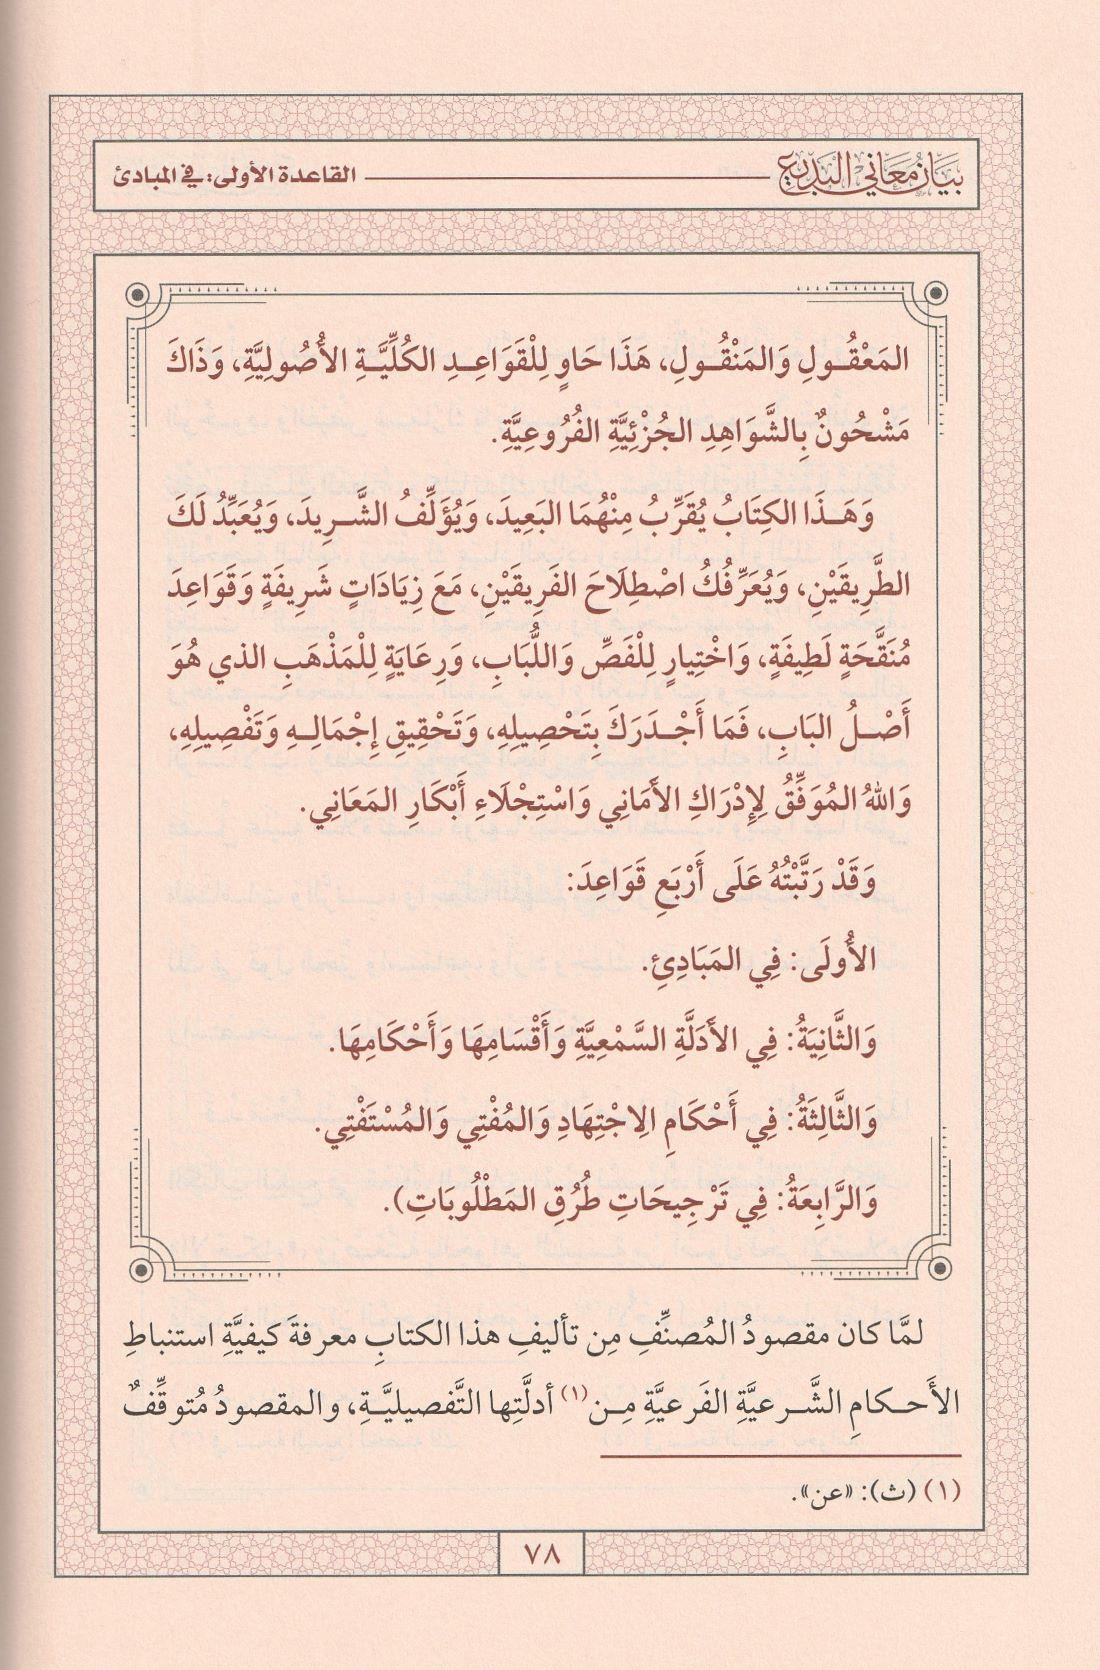 بيان معاني البديع
القاعدة الأولى: في المبادئ
المَعْقُولِ وَالمَنْقُولِ، هَذَا حَاوٍ لِلْقَوَاعِدِ الكُلِّيَّةِ الأُصُولِيَّةِ، وَذَاكَ
مَشْحُونٌ بِالشَّوَاهِدِ الجُزْئِيَّةِ الفُرُوعِيَّةِ.
وَهَذَا الكِتَابُ يُقَرِّبُ مِنْهُمَا البَعِيدَ، وَيُؤَلِّفُ الشَّرِيدَ، وَيُعَبِّدُ لَكَ
الطَّرِيقَيْنِ، وَيُعَرِّفُكُ اصْطِلَاحَ الفَرِيقَيْنِ، مَعَ زِيَادَاتٍ شَرِيفَةٍ وَقَوَاعِدَ
مُنَقَّحَةٍ لَطِيفَةٍ، وَاخْتِيارٍ لِلْفَصِّ وَاللُّبَابِ، وَرِعَايَةٍ لِلْمَذْهَبِ الذي هُوَ
أَصْلُ البَابِ، فَمَا أَجْدَرَكَ بِتَحْصِيلِهِ، وَتَحْقِيقِ إِجْمَالِهِ وَتَفْصِيلِهِ،
وَاللهُ المُوَفِّقُ لِإِدْرَاكِ الأَمَانِي وَاسْتِجْلَاءِ أَبْكَارِ المَعَانِي.
وَقَدْ رَتَّبْتُهُ عَلَى أَرْبَعِ قَوَاعِدَ:
الأُولَى: فِي المَبَادِئِ.
وَالثَّانِيَةُ: فِي الأَدَلَّةِ السَّمْعِيَّةِ وَأَقْسَامِهَا وَأَحْكَامِهَا.
وَالثَّالِثَةُ: فِي أَحْكَامِ الِاجْتِهَادِ وَالمُفْتِي وَالمُسْتَفْتِي.
وَالرَّابِعَةُ: فِي تَرْجِيحَاتِ طُرُقِ المَطْلُوبَاتِ).
لمَّا كان مقصودُ المُصنِّفِ مِن تأليفِ هذا الكتابِ معرفةَ كيفيَّةِ استنباطِ
الأَحكامِ الشَّرعيَّةِ الفَرعيَّةِ مِن(١) أدلَّتِها التَّفصيليَّةِ، والمقصودُ مُتوقِّفٌ
(١) (ث): «عن».
٧٨